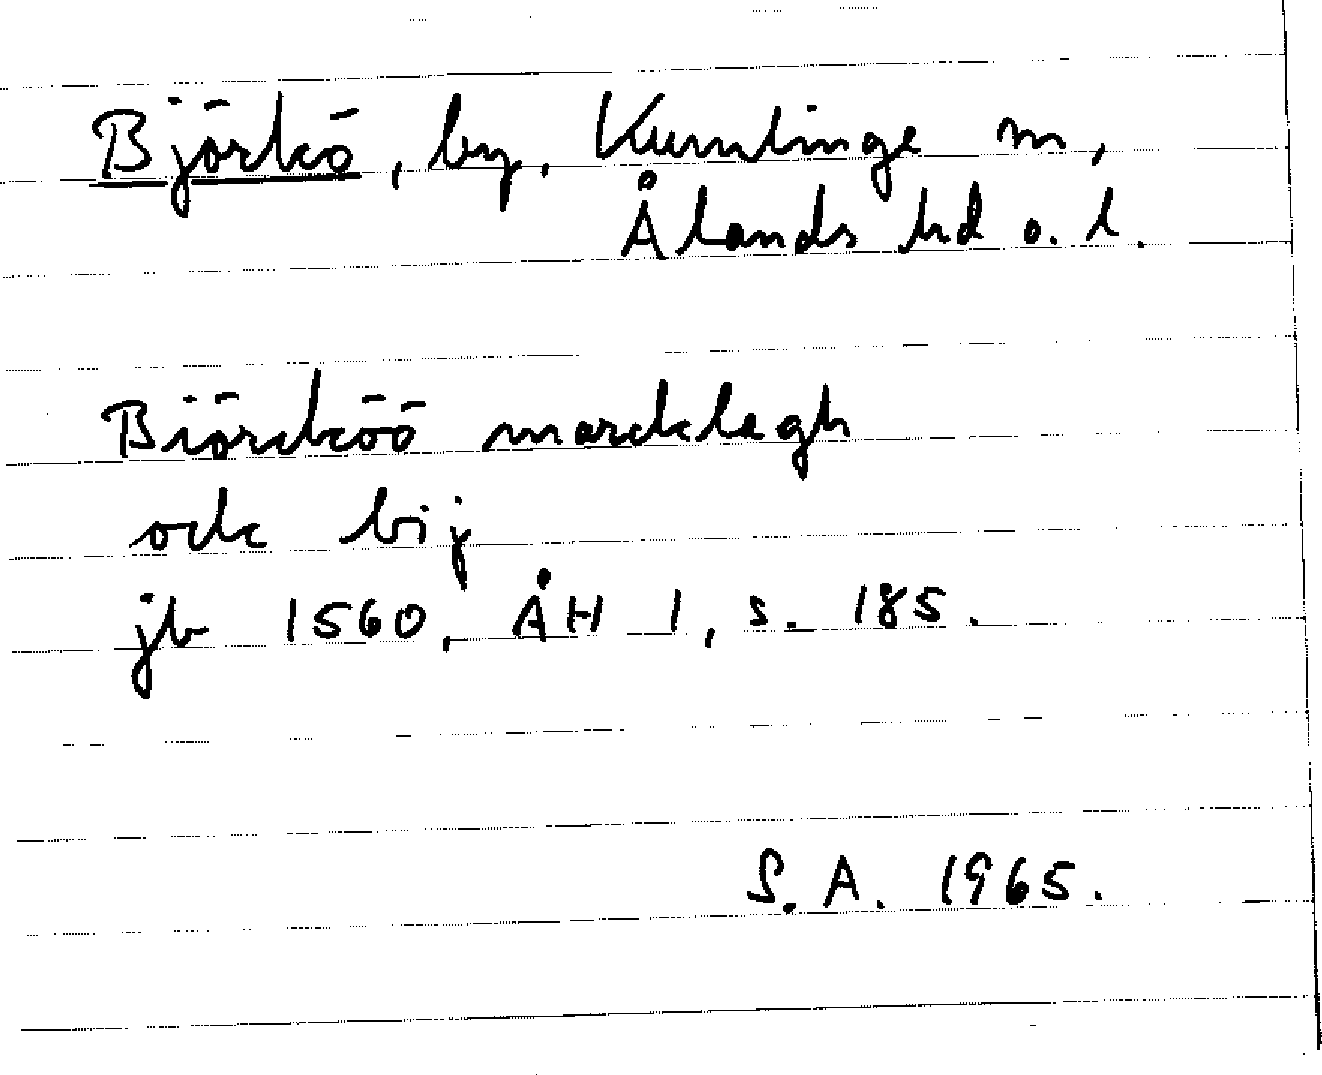 Björkö, by, Kumlinge m,
Ålands hd o. l.
Biörcköö marcklagh
ock bij
jb 1560, ÅH 1, s. 185.
S. A. 1965.